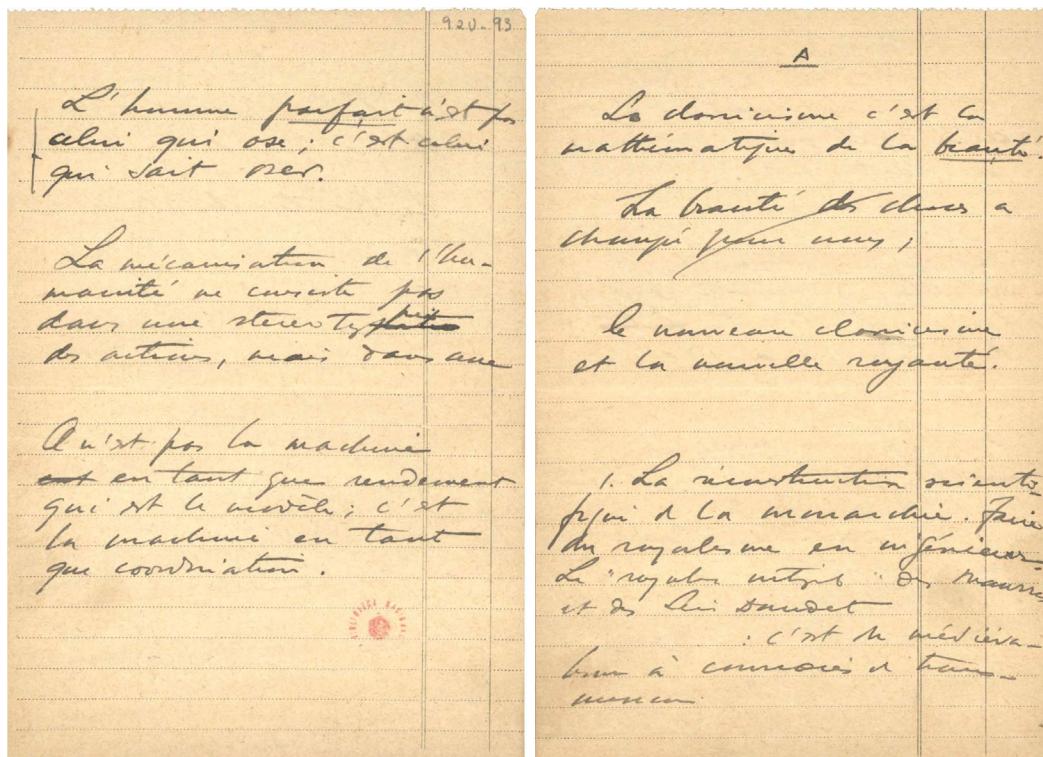 920-93
L'homme parfait n'est pas
celui qui ose ; c'est celui
qui sait oser.
La mécanisation de l'hu-
manité ne consiste pas
dans une stereotypie
des actions, mais dans une
Ce n'est pas la machine
en tant que rendement
qui est le modèle ; c'est
la machine en tant
que coordination.
A
Le classicisme c'est la
mathématique de la beauté.
La beauté des choses a
changé pour nous ;
le nouveau classicisme
et la nouvelle royauté.
1. La reconstruction scienti-
fique de la monarchie. Faire
du royalisme en ingénieur.
Le "royalisme intégral" des Maurras
et des Léon Daudet
: c'est du médiéva-
lisme à courroies de trans-
mission